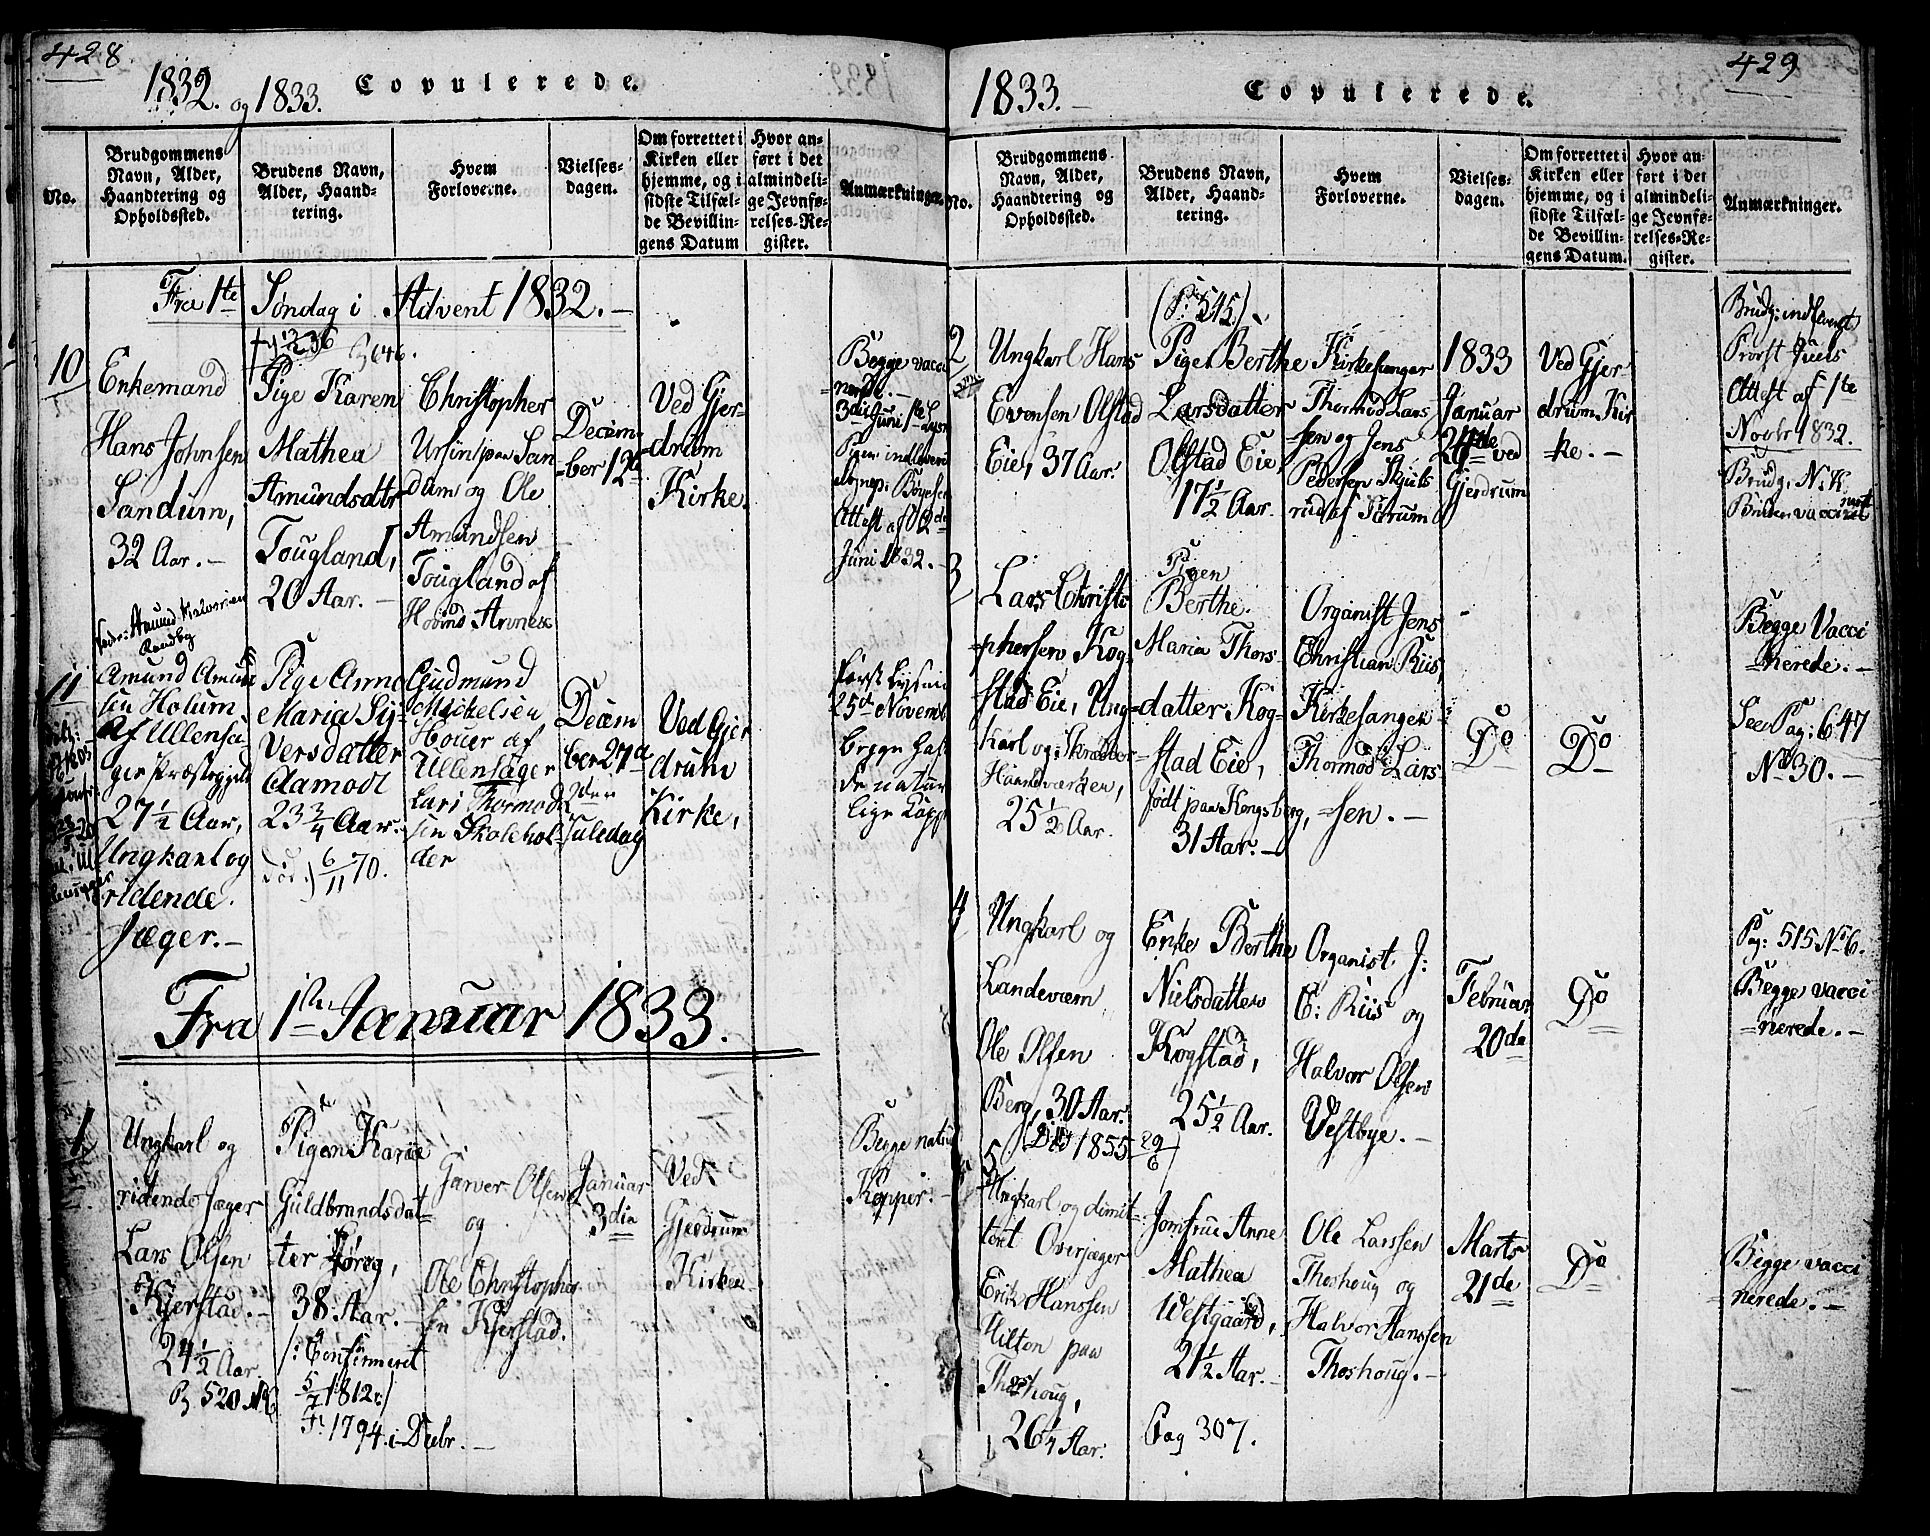 428.
1832. og 1833.
Copulerede.
No.
Brudgommens Navn, Alder, Haandtering og Opholdssted.
Brudens Navn, Alder, Haandtering.
Hvem Forloverne.
Vielsesdagen.
Om forrettet i Kirken eller hjemme, og i sidste Tilfælde Bevillingens Datum
Hvor anført i det almindelige Jevnførelses-Register.
Anmærkninger.
Fra 1te Søndag i Advent 1832.
10
Enkemand
Hans Johnsen
Sandum,
32 Aar.
Pige Karen
Mathea
Amundsdatr
Tougland,
20 Aar.
Christopher
Ursin paa San
dum og Ole
Amundsen
Tougland af
Decem-
ber 12te
Ved Gjer-
drum
Kirke.
Begge vacci
Attest af 2de
Juni 1832.
11
Amund Amund
sen Holum
Af Ullensa-
ger Præstegjeld
27 1/2 Aar,
Ungkarl og
ridende
Jæger.
Pige Anne
Maria Sy-
versdatter
Aamodt
23 3/4 Aar.
6/11 70.
Gudmund
Mickelsen
Houer af
Ullensager
Lars Thormod
sen Skolehol-
der
Decem
ber 27de
2den
Juledag
Ved Gjer
drum
Kirke,
25de Novemb
Fra 1te Januar 1833.
1
Ungkarl og
ridende Jæger
Lars Olsen
Kjerstad.
24 1/2 Aar.
Pigen Karie
Guldbrandsdat
ter
38 Aar.
/: Confirmeret
5/7 1812 :/
F: 1794 i Decbr.
Olsen
og
Ole Christopher
sen Kjerstad.
Januar
3die
Ved
Gjerdrum
Kirke
Begge natur
Kopper.
429
1833.
Copulerede.
No.
Brudgommens Navn, Alder, Haandtering og Opholdssted.
Brudens Navn, Alder, Haandtering.
Hvem Forloverne.
Vielsesdagen.
Om forrettet i Kirken eller hjemme, og i sidste Tilfælde Bevillingens Datum.
Hvor anført i det almindelige Jevnførelses-Register.
Anmærkninger.
2
Ungkarl Hans
Evensen Olstad
Eie, 37 Aar.
(P: 545)
Pigen Berthe
Larsdatter
Olstad Eie
17 1/2 Aar.
Kirkesanger
Thormod Lars-
sen og Jens
Pedersen
1833
Januar
ved
Gjerdrum
Ved Gjer
drum Kir
ke.
Brudg: indleveret
Provst
Attest af 1te
Novbr 1832.
Brudg. N: K.
Bruden vaccineret
3
Lars Christo
phersen Kog-
stad Eie, Ung-
karl og Skrædder-
Haandværker,
25 1/2 Aar.
Pigen
Berthe
Maria Thors-
datter Kog-
stad Eie,
født paa Kongsberg,
31 Aar.
Organist Jens
Christian Riis,
Kirkesanger
Thormod Lars-
sen.
Do
Do
Begge Vacci
nerede.
See Pag: 647
No 30.
4
Ungkarl og
Landeværn
Ole Olsen
Berg, 30 Aar.
Død 1855 29/6
Enke Berthe
Nielsdatter
Kogstad,
25 1/2 Aar.
Organist J:
C: Riis og
Halvor Olsen
Vestbye.
Februar
20de
Do
Pag: 515 No 6.
Begge vacci
nerede.
5
Ungkarl og dimit-
teret Overjæger
Erik Hanssen
Hilton paa
Thoshoug,
26 1/4 Aar.
Jomfrue Anne
Mathea
Westgaard,
21 1/2 Aar.
Pag 307.
Ole Larssen
Thoshoug og
Halvor Hanssen
Thoshoug.
Marts
21de
Do
Begge vacci
nerede.